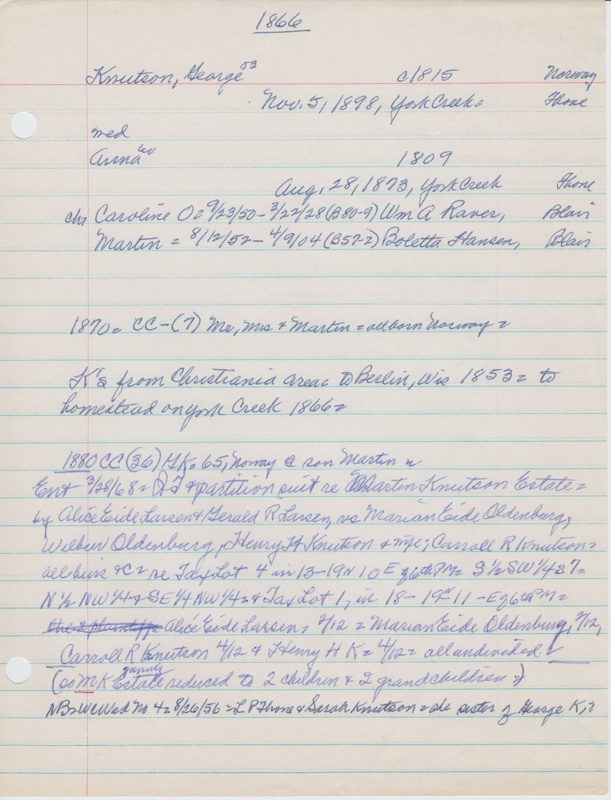 1866
Knutson, George 53 c1815 Norway
Nov. 5, 1898, York Creek = Thone
med
Anna 60 1809
Aug. 28, 1873, York Creek Thone
chs Caroline O = 9/23/50 - 3/22/28 (B80-9) Wm A Raver, Blair
Martin = 8/12/52 - 4/9/04 (B57-2) Boletta Hansen, Blair
1870 = CC - (7) Mr, Mrs & Martin = all born Norway =
K's from Christiania area = to Berlin, Wis 1853 = to
homestead on York Creek 1866 =
1880 CC (36) GK = 65, Norway c son Martin
Ent 3/28/68 = & partition suit re Martin Knutson Estate =
by Alice Eide Larsen & Gerald R Larsen, vs Marian Eide Oldenburg,
Wilbur Oldenburg, Henry H Knutson & wife; Carroll R Knutson =
all heirs &c = re Tax Lot 4 in 13-19N 10 E of 6th PM = S 1/2 SW 1/4 & 7 =
N 1/2 NW 1/4 & SE 1/4 NW 1/4 = & Tax Lot 1, in 18 - 19N 11 - E of 6th PM =
Alice Eide Larsen = 2/12 = Marian Eide Oldenburg, 2/12,
Carroll R Knutson 4/12 & Henry H K = 4/12 = all undivided =
(so M K family Estate reduced to 2 children & 2 grandchildren =)
NB = We Wed No 4 = 8/26/56 = L P Thone & Sarah Knutson = she sister of George K,?